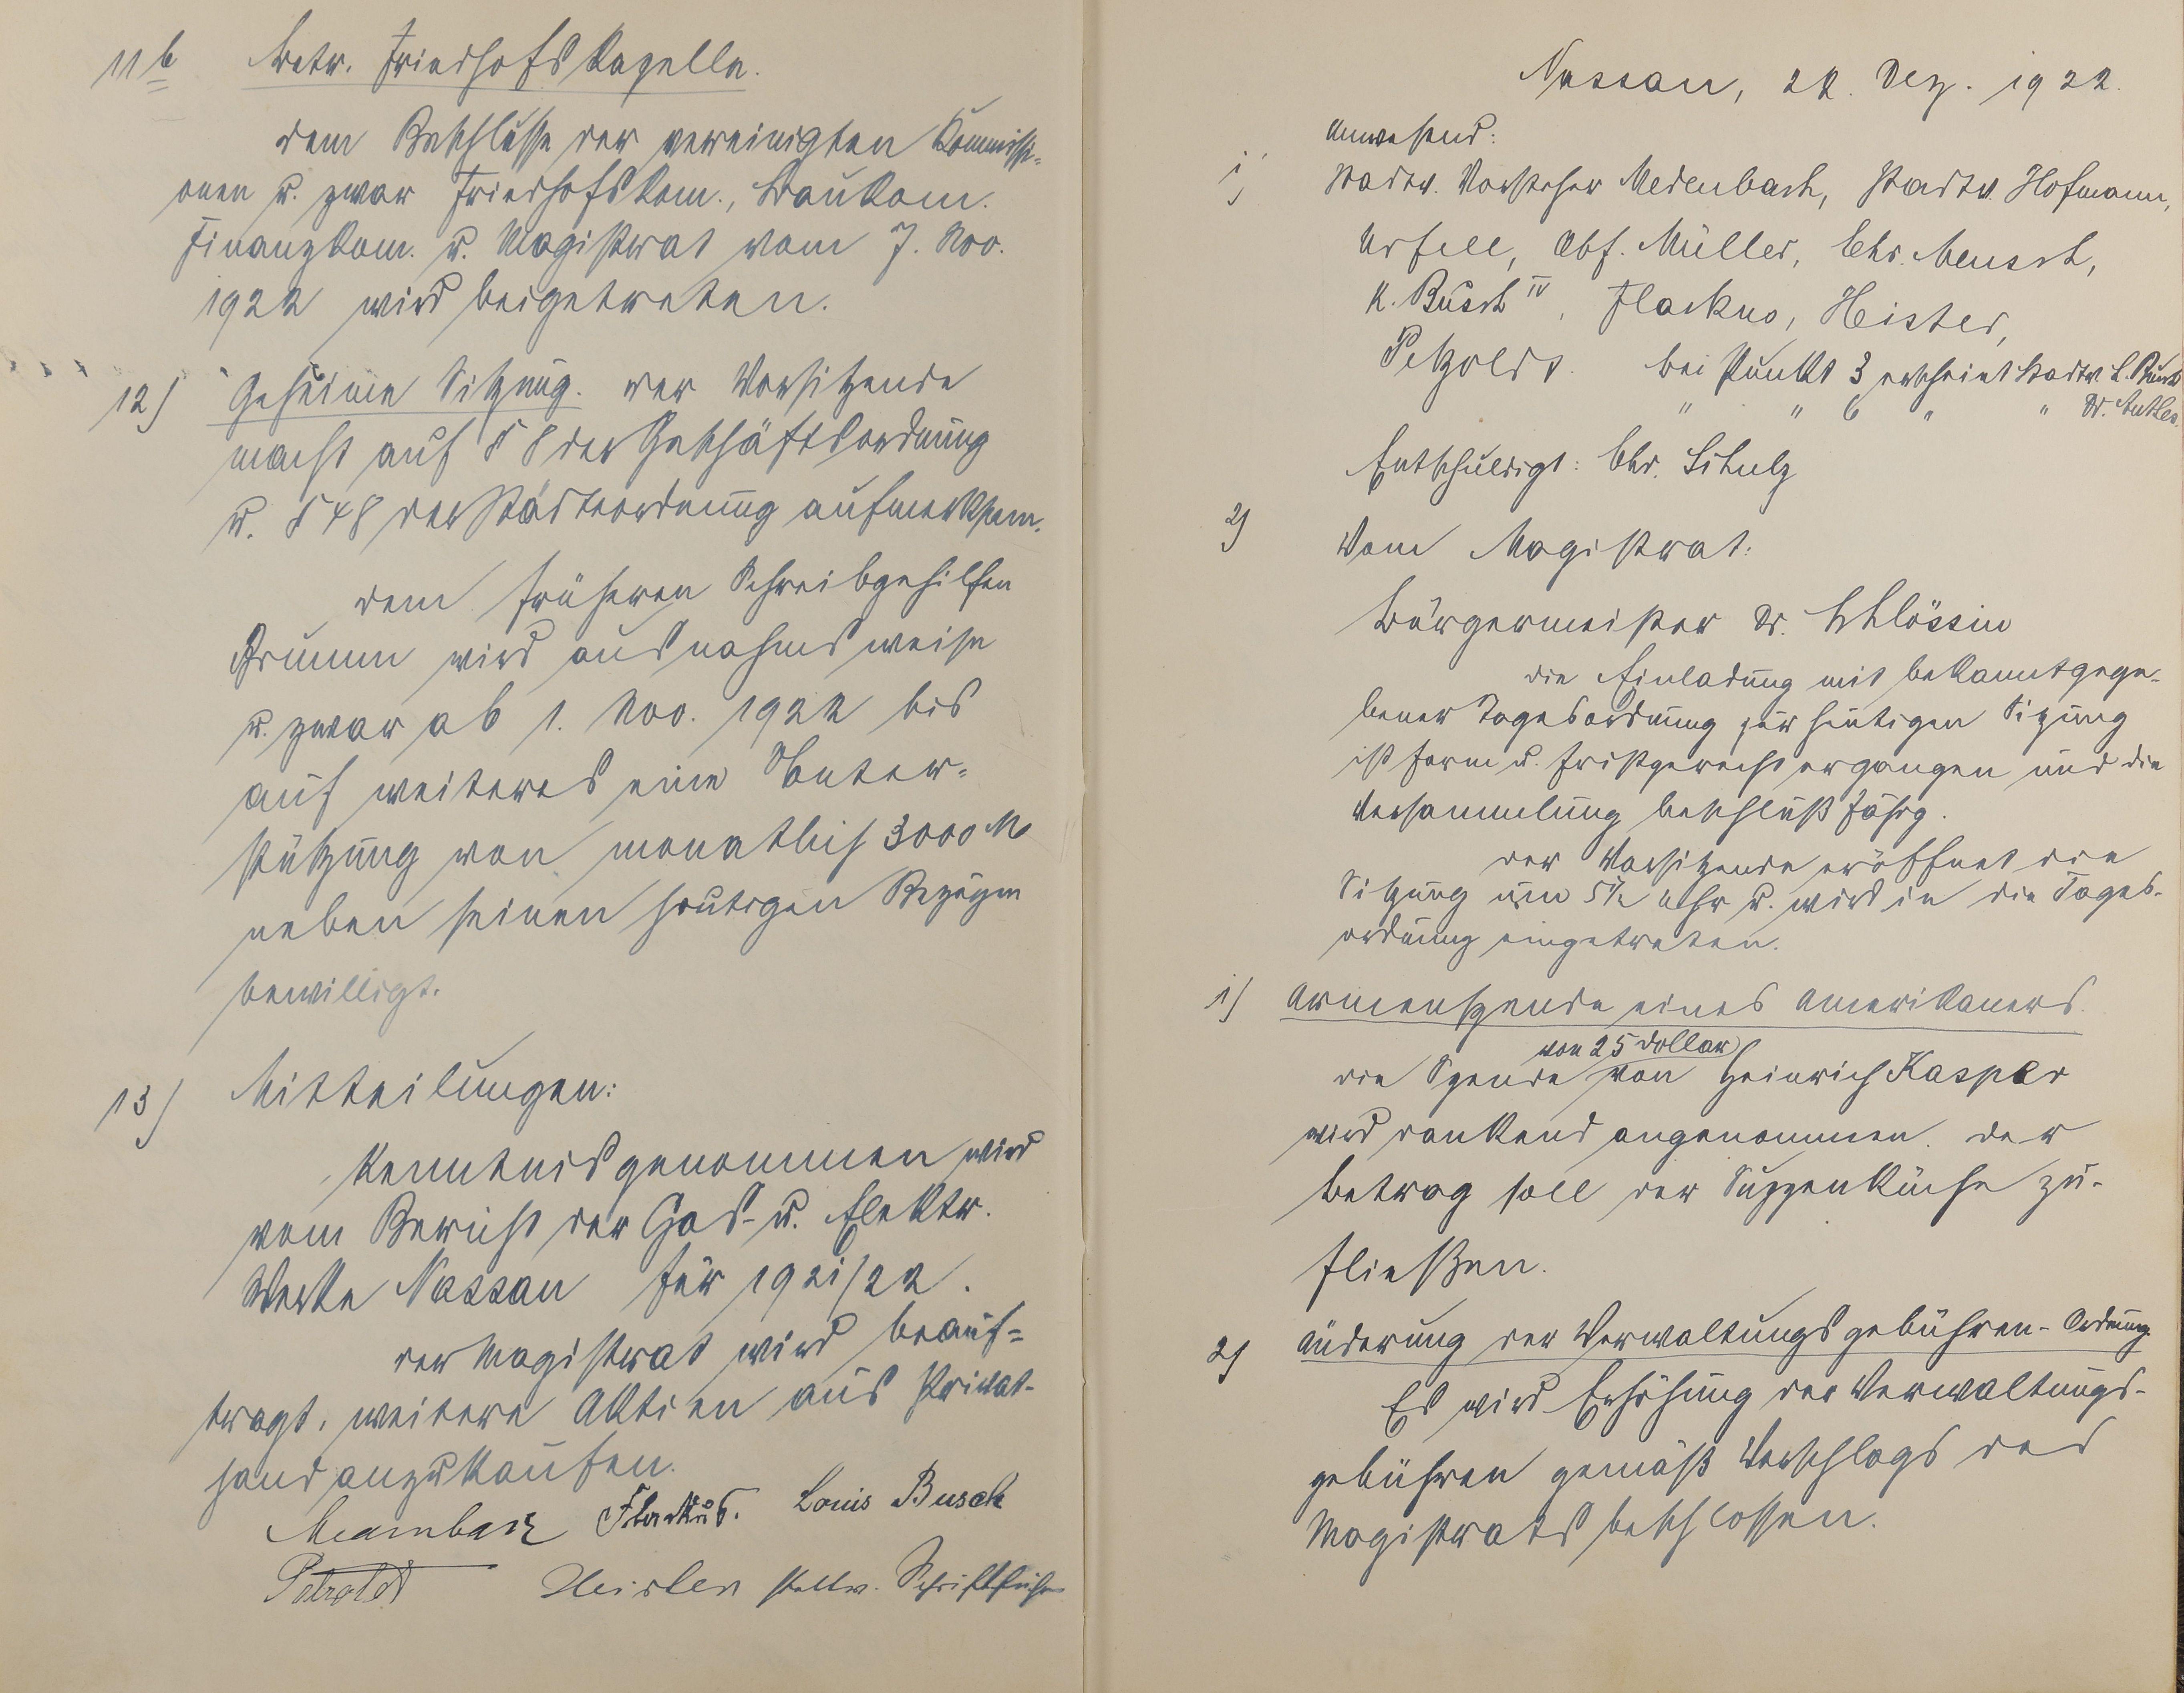 11b Betr. Friedhofskapelle.
Dem Beschlusse der vereinigten Kommissi-
onen u. zwar Friedhofskom., Baukom.
Finanzkom. u. Magistrat vom 7. Nov.
1922 wird beigetreten.
12) Geheime Sitzung. Der Vorsitzende
macht auf § 8 der Geschäftsordnung
u. § 48 der Städteordnung aufmerksam.
Dem früheren Schreibgehilfen
wird ausnahmsweise
u. zwar ab 1. Nov. 1922 bis
auf weiteres eine Unter-
stützung von monatlich 3000 M
neben seinen heutigen Bezügen
bewilligt.
13) Mitteilungen:
Kenntnis genommen wird
vom Bericht der Gas- u. Elektr.
Werke Nassau für 1921/22.
Der Magistrat wird beauf-
tragt, weitere Aktien aus Privat-
hand anzukaufen.
Medenbach Flackus. Louis Busch
Petzoldt Heister stellv. Schriftführer
Nassau, 28. Dez. 1922.
Anwesend:
1) Stadtv. Vorsteher Medenbach, Stadtv. Hofmann,
Urfell, Abs. Müller, Chr. Mensch,
K. Busch IV, Flackus, Heister,
Petzoldt. bei Punkt 3 erscheint Stadtv. L. Busch
" " 6 " " Dr. Anthes.
Entschuldigt: Chr. Schulz
2) Vom Magistrat:
Bürgermeister Dr. Schlössin
Die Einladung mit bekanntgege-
bener Tagesordnung zur heutigen Sitzung
ist form u. fristgerecht ergangen und die
Versammlung beschlußfähig.
Der Vorsitzende eröffnet die
Sitzung um 5½ Uhr u. wird in die Tages-
ordnung eingetreten.
1) Armenspende eines Amerikaners.
von 25 Dollar
Die Spende von Heinrich Kasper
wird dankend angenommen. Der
Betrag soll der Suppenküche zu-
fließen.
2) Änderung der Verwaltungsgebühren-Ordnung
Es wird Erhöhung der Verwaltungs-
gebühren gemäß Vorschlags des
Magistrats beschlossen.